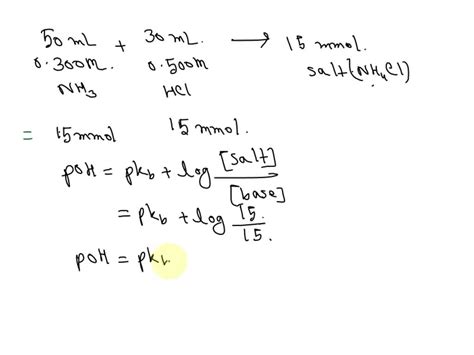 50 mL + 30 mL. → 15 mmol.
0.300M. 0.500M salt(NH4Cl)
NH3 HCl
= 15mmol 15 mmol.
pOH = pkb + log [salt]/[base]
= pkb + log 15./15.
pOH = pkb